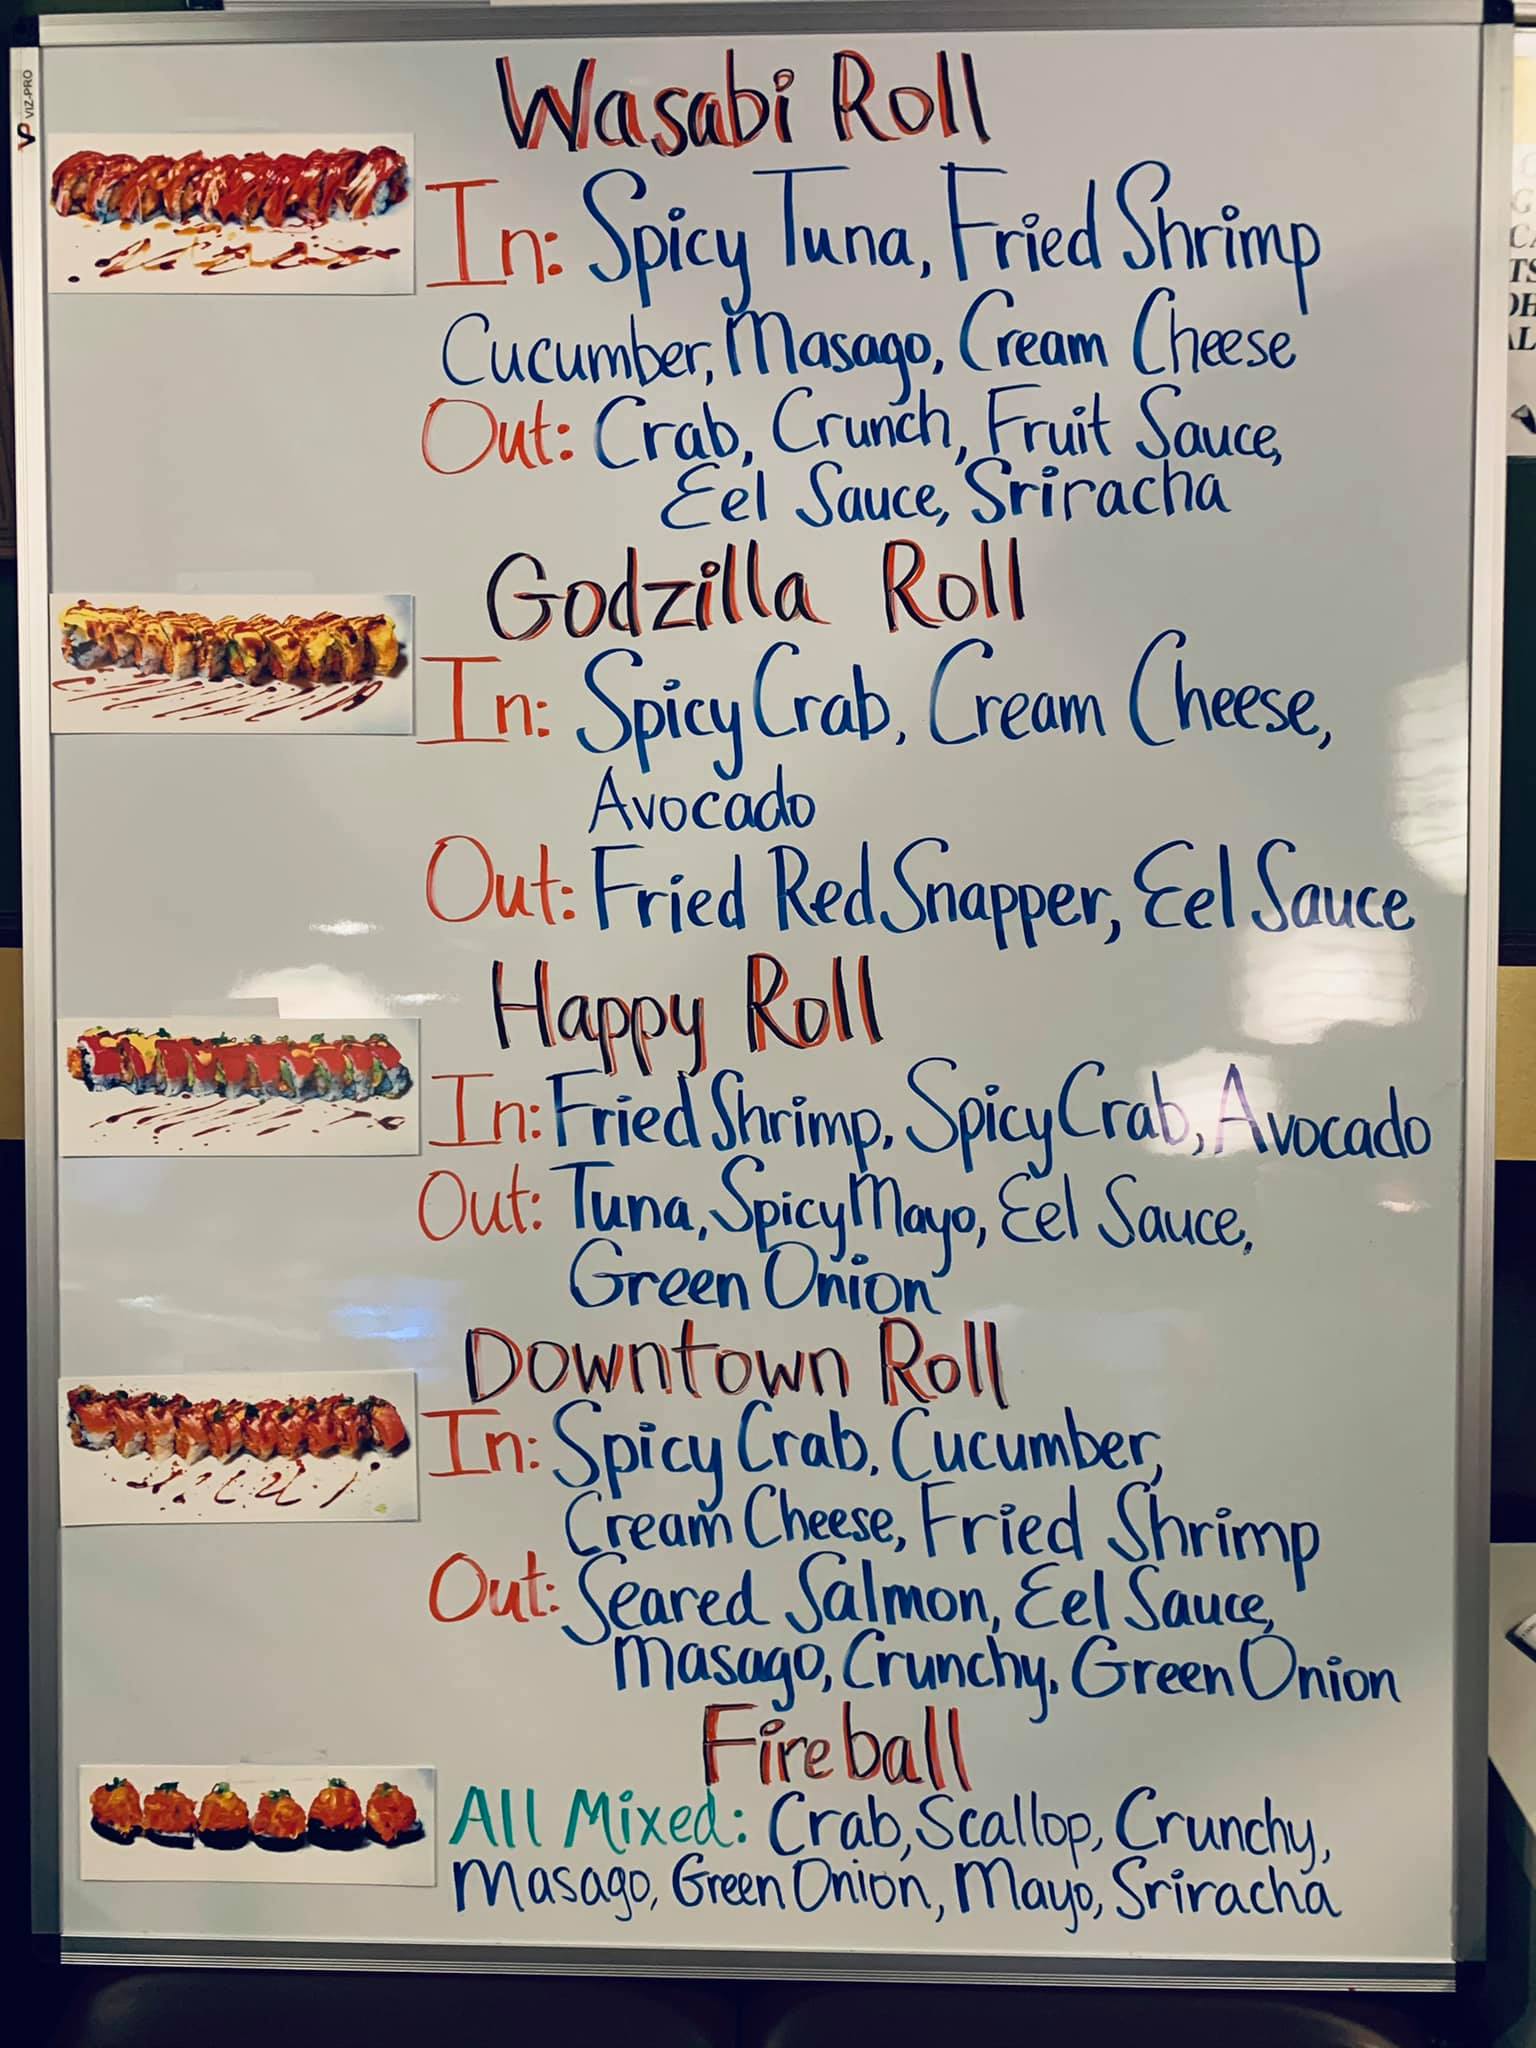 VP VIZ-PRO
Wasabi Roll
In: Spicy Tuna, Fried Shrimp
Cucumber, Masago, Cream Cheese
Out: Crab, Crunch, Fruit Sauce,
Eel Sauce, Sriracha
Godzilla Roll
In: Spicy Crab, Cream Cheese,
Avocado
Out: Fried Red Snapper, Eel Sauce
Happy Roll
In: Fried Shrimp, Spicy Crab, Avocado
Out: Tuna, Spicy Mayo, Eel Sauce,
Green Onion
Downtown Roll
In: Spicy Crab, Cucumber,
Cream Cheese, Fried Shrimp
Out: Seared Salmon, Eel Sauce,
Masago, Crunchy, Green Onion
Fireball
All Mixed: Crab, Scallop, Crunchy,
Masago, Green Onion, Mayo, Sriracha